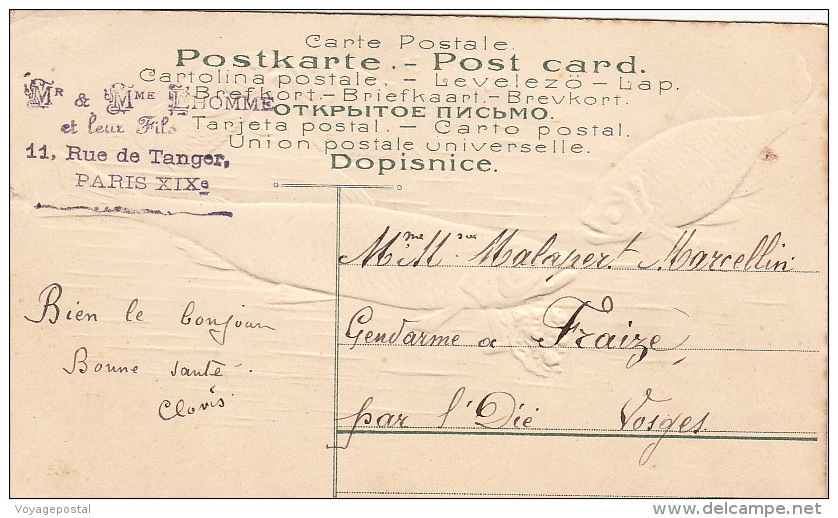 Carte Postale.
Postkarte.- Post card.
Cartolina postale. - Levelezö - Lap.
Brefkort.-Briefkaart.-Brevkort.
ОТКРЫТОЕ ПИСЬМО.
Tarjeta postal. - Carto postal.
Union postale universelle.
Dopisnice.
MR & MME LHOMME
et leur Fils
11, Rue de Tanger,
PARIS XIXe
Mme M Malapert Marcellin
Gendarme a Fraize,
par l' Dié Vosges
Bien le bonjour
Bonne santé.
Clovis
Voyagepostal
delcampe.net